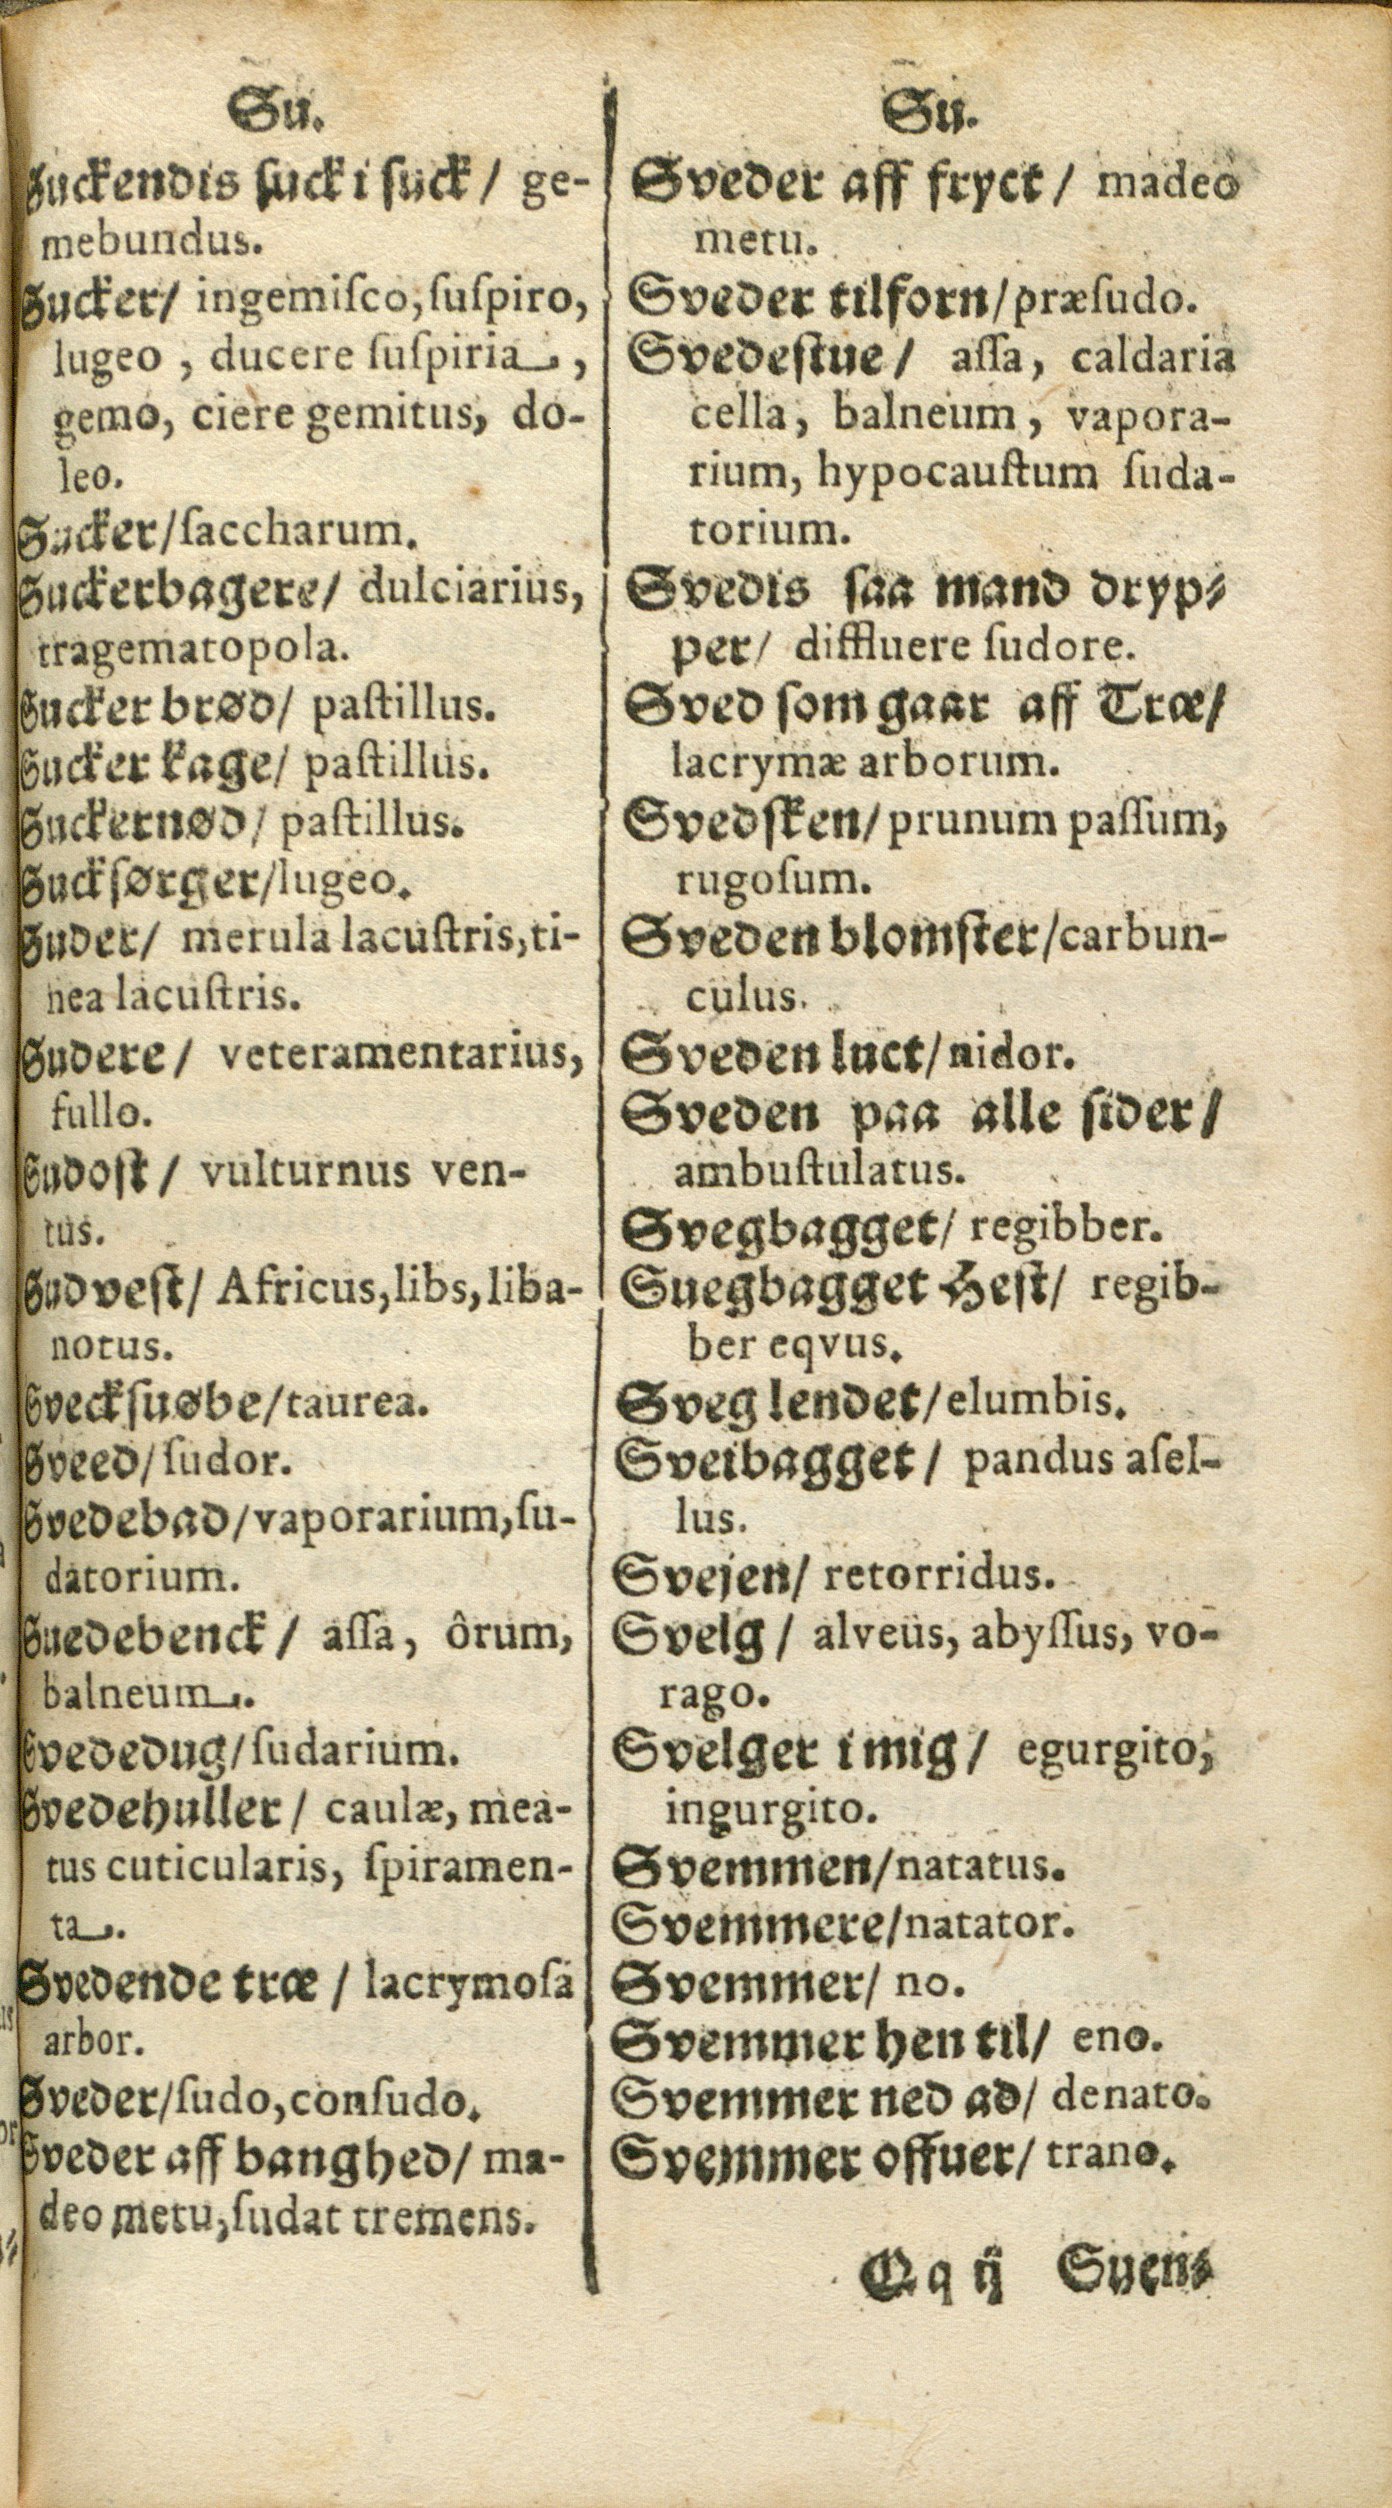 Su.
Suckendis suck i suck / ge-
mebundus.
Sucker/ ingemiſco, ſuſpiro,
lugeo , ducere ſuſpiria,
gemo, ciere gemitus, do-
leo.
Sucker/ſaccharum.
Suckerbagere/ dulciarius,
tragematopola.
Sucker brød/ paſtillus.
Sucker kage/ paſtillus.
Suckernød/ paſtillus.
Suckſørger/lugeo.
Suder/ merula lacuſtris, ti-
nea lacuſtris.
Sudere / veteramentarius,
fullo.
Sudoſt / vulturnus ven-
tus.
Sudveſt/ Africus, libs, liba-
notus.
Sveckſuøbe/taurea.
Sveed/ſudor.
Svedebad/vaporarium, ſu-
datorium.
Suedebenck / aſſa, ôrum,
balneum.
Svededug/ſudarium.
Svedehuller/ caulæ, mea-
tus cuticularis, ſpiramen-
ta.
Svedende træ / lacrymoſa
arbor.
Sveder/ſudo, conſudo.
Sveder aff banghed/ ma-
deo metu, ſudat tremens.
Su.
Sveder aff fryct / madeo
metu.
Sveder tilforn/præſudo.
Svedeſtue / aſſa, caldaria
cella, balneum, vapora-
rium, hypocauſtum ſuda-
torium.
Svedis ſaa mand dryp-
per/ diffluere ſudore.
Sved ſom gaar aff Træ/
lacrymæ arborum.
Svedſken/prunum paſſum,
rugoſum.
Sveden blomſter/carbun-
culus.
Sveden luct/nidor.
Sveden paa alle ſider/
ambuſtulatus.
Svegbagget/ regibber.
Suegbagget Heſt/ regib-
ber eqvus.
Sveg lendet/elumbis.
Sveibagget / pandus aſel-
lus.
Svejen/ retorridus.
Svelg / alveus, abyſſus, vo-
rago.
Svelger i mig / egurgito,
ingurgito.
Svemmen/natatus.
Svemmere/natator.
Svemmer/ no.
Svemmer hen til/ eno.
Svemmer ned ad/ denato.
Svemmer offuer/ trano.
Qq ij Suen-